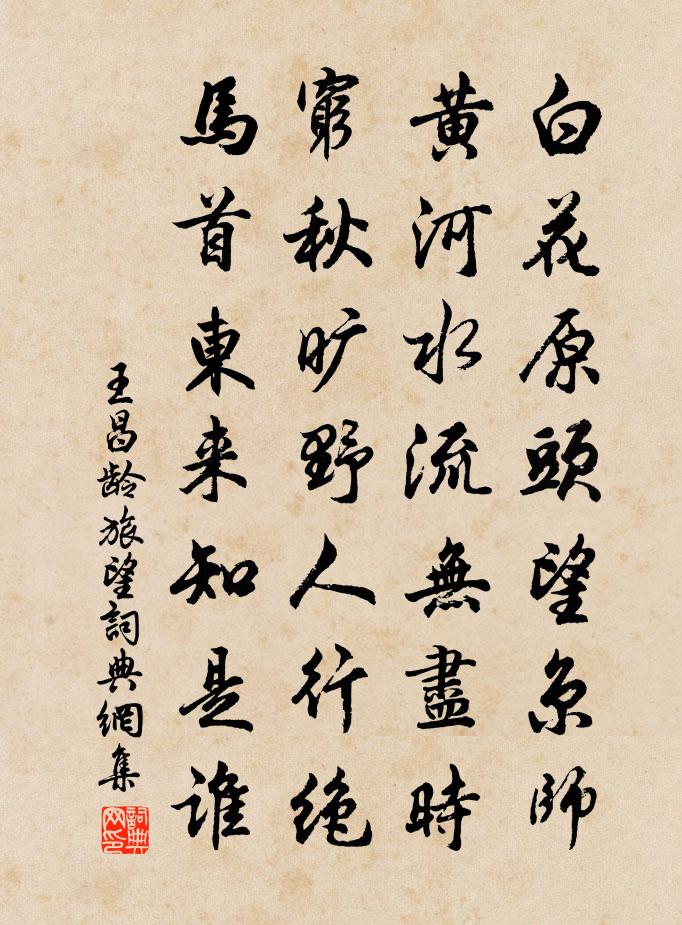 白花原頭望京師
黃河水流無盡時
窮秋曠野人行絕
馬首東来知是誰
王昌龄旅望詞典網集
詞典网印